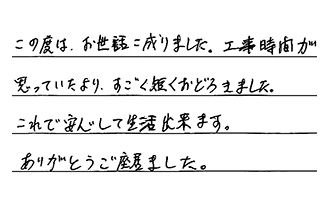 この度は、お世話に成りました。工事時間が
思っていたより、すごく短くおどろきました。
これで安心して生活出来ます。
ありがとうご座居ました。